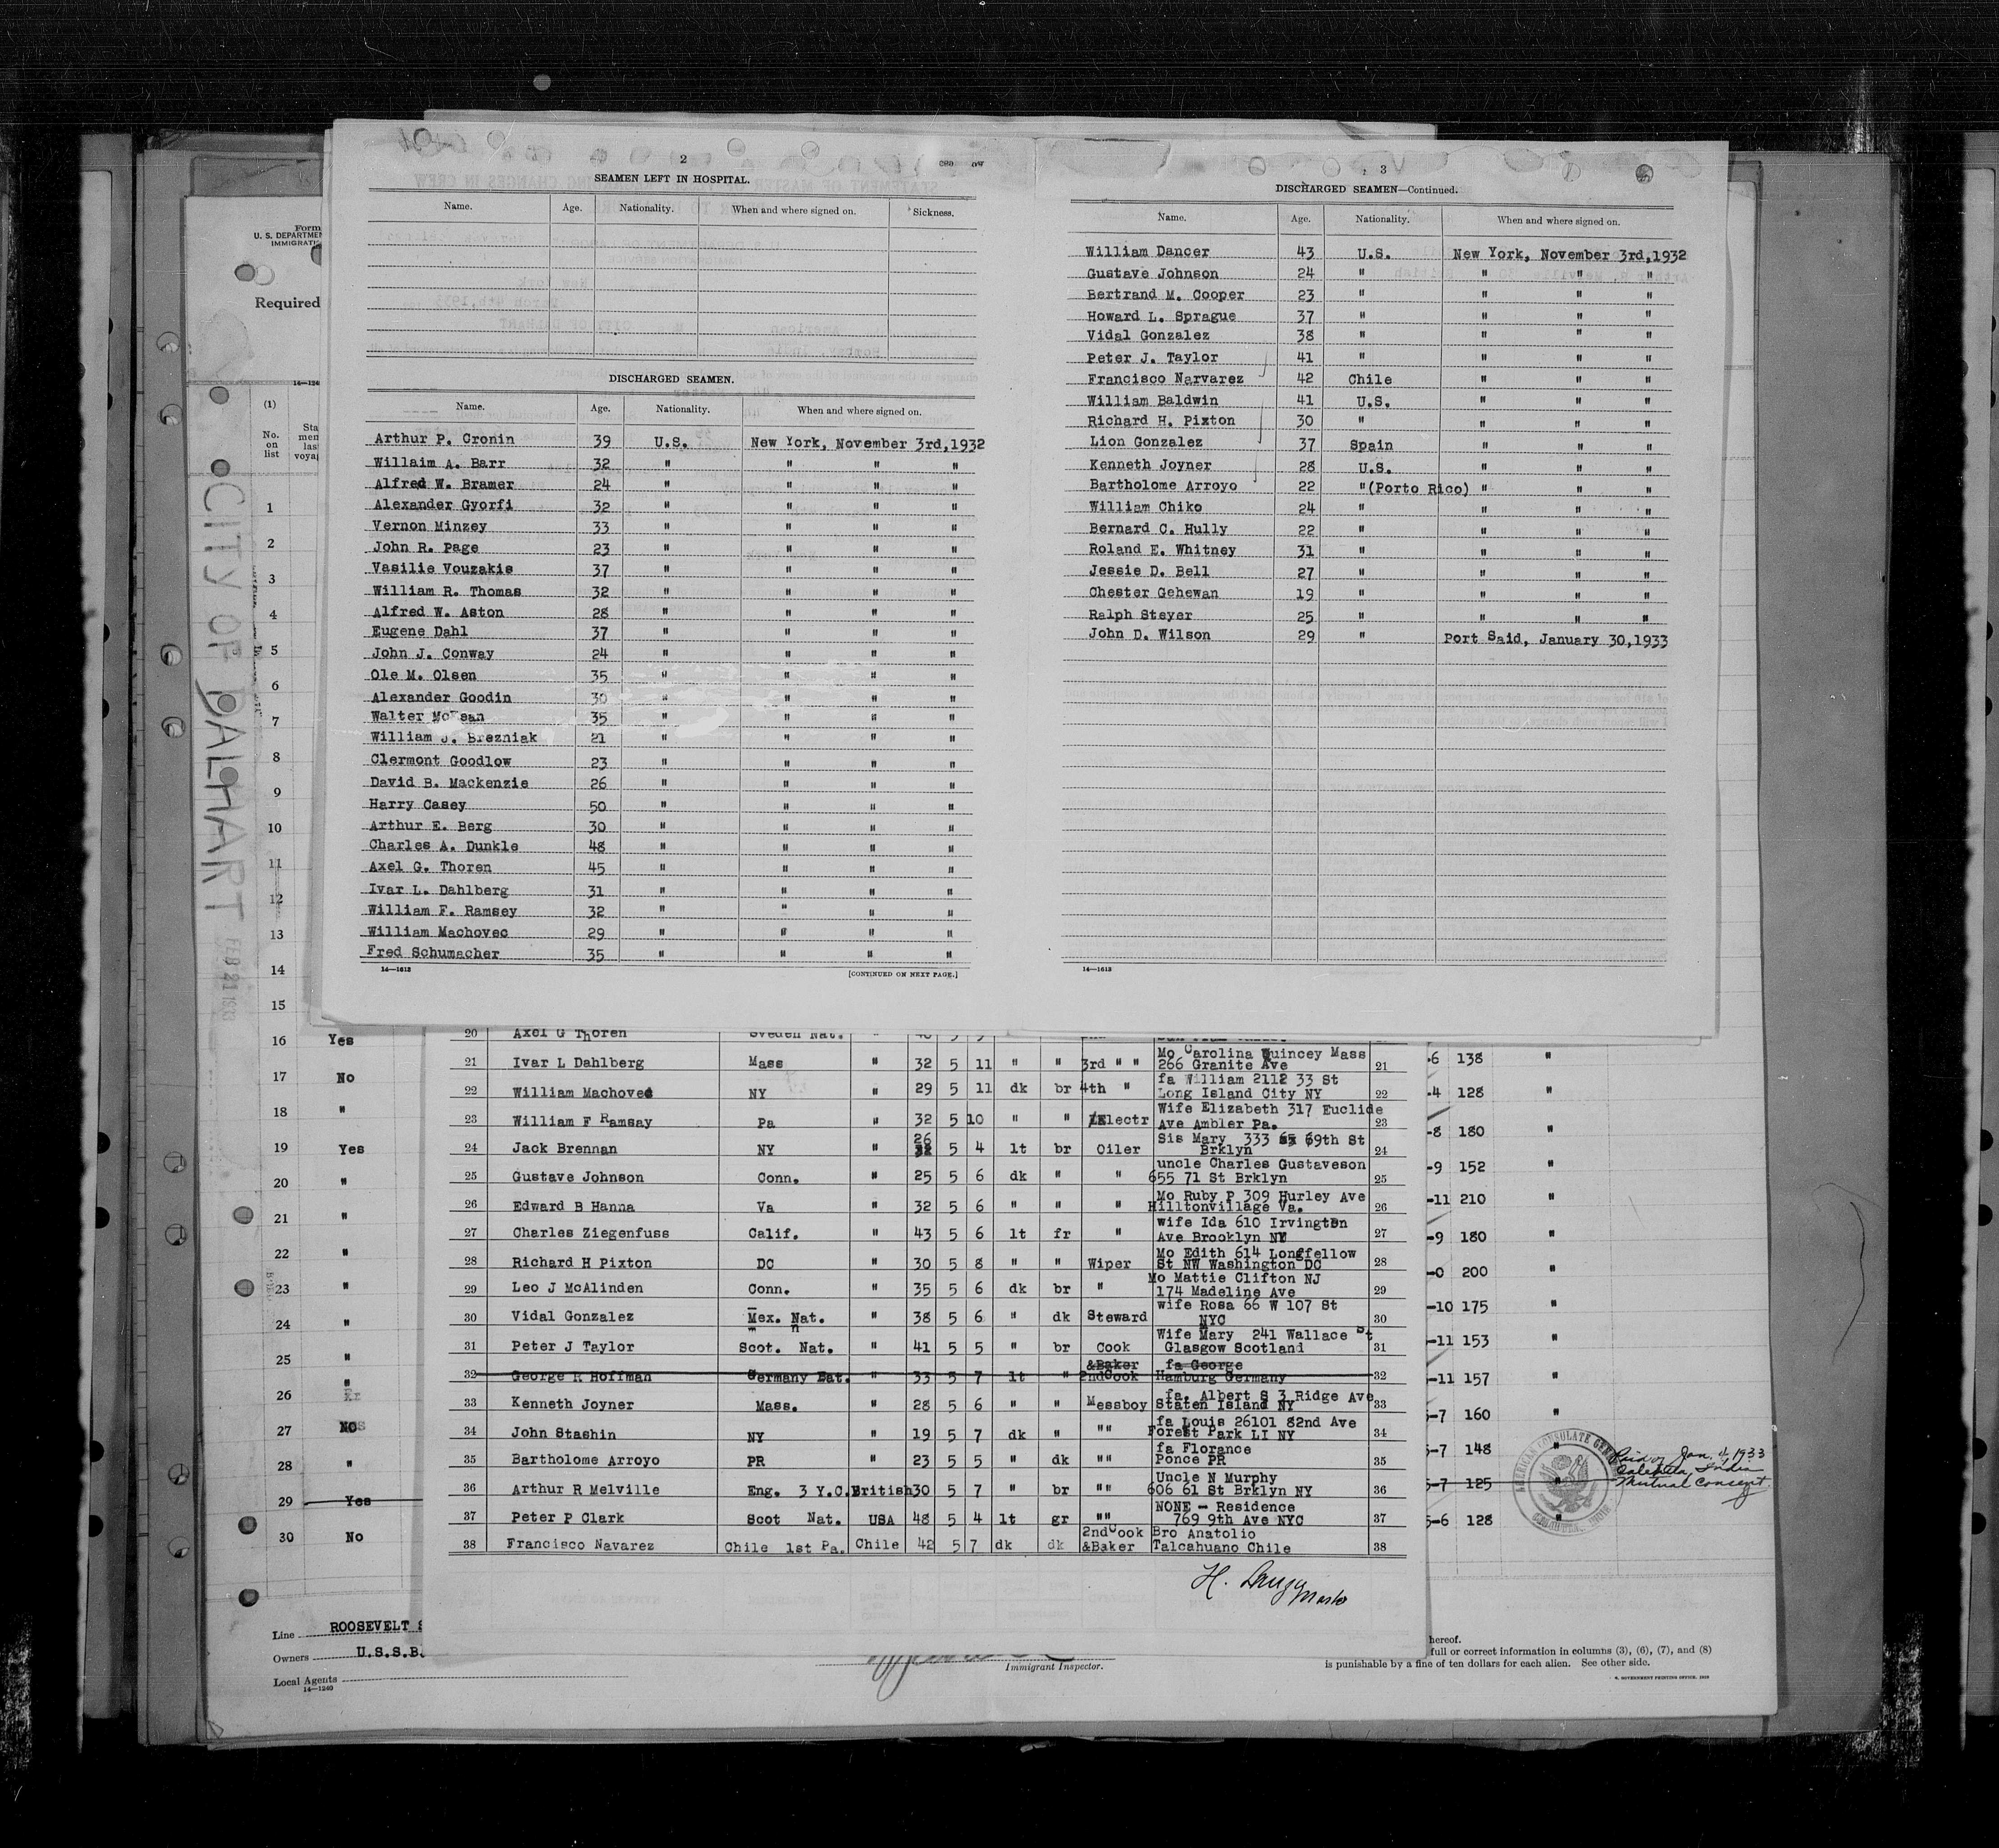 2
SEAMEN LEFT IN HOSPITAL.
Name. Age. Nationality. When and where signed on. Sickness.
DISCHARGED SEAMEN.
Name. Age. Nationality. When and where signed on.
Arthur P. Cronin 39 U.S. New York, November 3rd,1932
Willaim A. Barr 32 " " " "
Alfred W. Bramer 24 " " " "
Alexander Gyorfi 32 " " " "
Vernon Minzey 33 " " " "
John R. Page 23 " " " "
Vasilie Vouzakis 37 " " " "
William R. Thomas 32 " " " "
Alfred W. Aston 28 " " " "
Eugene Dahl 37 " " " "
John J. Conway 24 " " " "
Ole M. Olsen 35 " " " "
Alexander Goodin 30 " " " "
Walter 35 " " " "
William J. Brezniak 21 " " " "
Clermont Goodlow 23 " " " "
David B. Mackenzie 26 " " " "
Harry Casey 50 " " " "
Arthur E. Berg 30 " " " "
Charles A. Dunkle 48 " " " "
Axel G. Thoren 45 " " " "
Ivar L. Dahlberg 31 " " " "
William F. Ramsey 32 " " " "
William Machovec 29 " " " "
Fred Schumacher 35 " " " "
14—1613 [CONTINUED ON NEXT PAGE.]
3
DISCHARGED SEAMEN—Continued.
Name. Age. Nationality. When and where signed on.
William Dancer 43 U.S. New York, November 3rd,1932
Gustave Johnson 24 " " " "
Bertrand M. Cooper 23 " " " "
Howard L. Sprague 37 " " " "
Vidal Gonzalez 38 " " " "
Peter J. Taylor 41 " " " "
Francisco Narvarez 42 Chile " " "
William Baldwin 41 U.S. " " "
Richard H. Pixton 30 " " " "
Lion Gonzalez 37 Spain " " "
Kenneth Joyner 28 U.S. " " "
Bartholome Arroyo 22 "(Porto Rico) " " "
William Chiko 24 " " " "
Bernard C. Hully 22 " " " "
Roland E. Whitney 31 " " " "
Jessie D. Bell 27 " " " "
Chester Gehewan 19 " " " "
Ralph Steyer 25 " " " "
John D. Wilson 29 " Port Said, January 30,1933
14—1613
Form
U. S. DEPARTMEN
IMMIGRATI
Required
14—124
(1)
No. on list
Sta men las voya
CITY OF DALHART
FEB 21 1933
1
2
3
4
5
6
7
8
9
10
11
12
13
14
15
16 Yes
17 No
18 "
19 Yes
20 "
21 "
22 "
23 "
24 "
25 "
26 "
27 NO
28 "
29 Yes
30 No
20 Axel G Thoren Sveden Nat. "
21 Ivar L Dahlberg Mass " 32 5 11 " " 3rd " " Mo Carolina Quincey Mass
266 Granite Ave 21
22 William Machovec NY " 29 5 11 dk br 4th " fa William 2112 33 St
Long Island City NY 22
23 William F Ramsay Pa " 32 5 10 " " Electr Wife Elizabeth 317 Euclide
Ave Ambler Pa. 23
24 Jack Brennan NY " 26 5 4 lt br Oiler Sis Mary 333 69th St
Brklyn 24
25 Gustave Johnson Conn. " 25 5 6 dk " " uncle Charles Gustaveson
655 71 St Brklyn 25
26 Edward B Hanna Va " 32 5 6 " " " Mo Ruby P 309 Hurley Ave
Hilltonvillage Va. 26
27 Charles Ziegenfuss Calif. " 43 5 6 lt fr " wife Ida 610 Irvington
Ave Brooklyn NY 27
28 Richard H Pixton DC " 30 5 8 " " Wiper Mo Edith 614 Longfellow
St NW Washington DC 28
29 Leo J McAlinden Conn. " 35 5 6 dk br " Mo Mattie Clifton NJ
174 Madeline Ave 29
30 Vidal Gonzalez Mex. Nat. " 38 5 6 " dk Steward wife Rosa 66 W 107 St
NYC 30
31 Peter J Taylor Scot. Nat. " 41 5 5 " br Cook Wife Mary 241 Wallace St
Glasgow Scotland 31
32 George R Hoffman Germany Nat. " 33 5 7 lt " &Baker 2ndCook fa George
Hamburg Germany 32
33 Kenneth Joyner Mass. " 28 5 6 " " Messboy fa. Albert S 3 Ridge Ave
Staten Island NY 33
34 John Stashin NY " 19 5 7 dk " "" fa Louis 26101 82nd Ave
Forest Park LI NY 34
35 Bartholome Arroyo PR " 23 5 5 " dk "" fa Florance
Ponce PR 35
36 Arthur R Melville Eng. 3 Y.C. British 30 5 7 " br "" Uncle N Murphy
606 61 St Brklyn NY 36
37 Peter P Clark Scot Nat. USA 48 5 4 lt gr "" NONE - Residence
769 9th Ave NYC 37
38 Francisco Navarez Chile 1st Pa. Chile 42 5 7 dk dk 2ndCook &Baker Bro Anatolio
Talcahuano Chile 38
Master
-6 138 "
-4 128 "
-8 180 "
-9 152 "
-11 210 "
-9 180 "
-0 200 "
-10 175 "
-11 153 "
-11 157 "
-7 160 "
-7 148 "
-7 125 "
5-6 128 "
AMERICAN CONSULATE GENERAL
CALCUTTA, INDIA
Paid off Jan. 4, 1933
Calcutta, India
Mutual Consent.
Line ROOSEVELT S
Owners U.S.S.B.
Local Agents
14—1240
Immigrant Inspector.
hereof.
full or correct information in columns (3), (6), (7), and (8)
is punishable by a fine of ten dollars for each alien. See other side.
GOVERNMENT PRINTING OFFICE